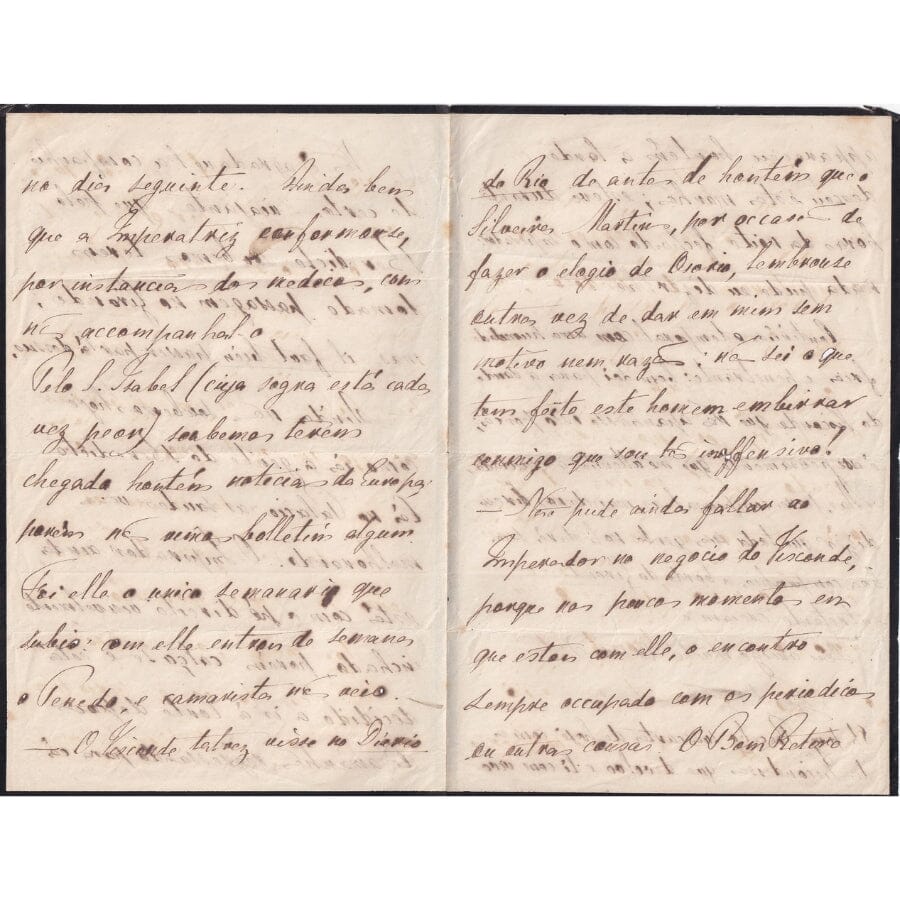 no dia seguinte. Ainda bem
que a Imperatriz conformou-se,
por instancias dos medicos, com
nẽ, accompanhal-o
Pelo S. Isabel (cuja sogra está cada
vez peor) soubemos terem
chegado hontẽs noticias da Europa;
porém nẽ vinha bolletim algum.
Foi elle o unico semanario que
subio: com elle entrou de semana
o Penedo e camarista nẽ veio. —
— O Visconde talvez visse no Diario
do Rio de antes de hontẽs que o
Silveira Martins, por occasẽ de
fazer o elogio de Osorio, lembrou-se
outra vez de dar em mim sem
motivo nem razã: nã sei o que
tem feito este homem embirrar
commigo que sou tã inoffensivo!
— Não pude ainda fallar ao
Imperador no negocio do Visconde,
porque nos poucos momentos em
que estou com elle, o encontro
sempre occupado com os periodicos
ou outras cousas. O Bom Retiro